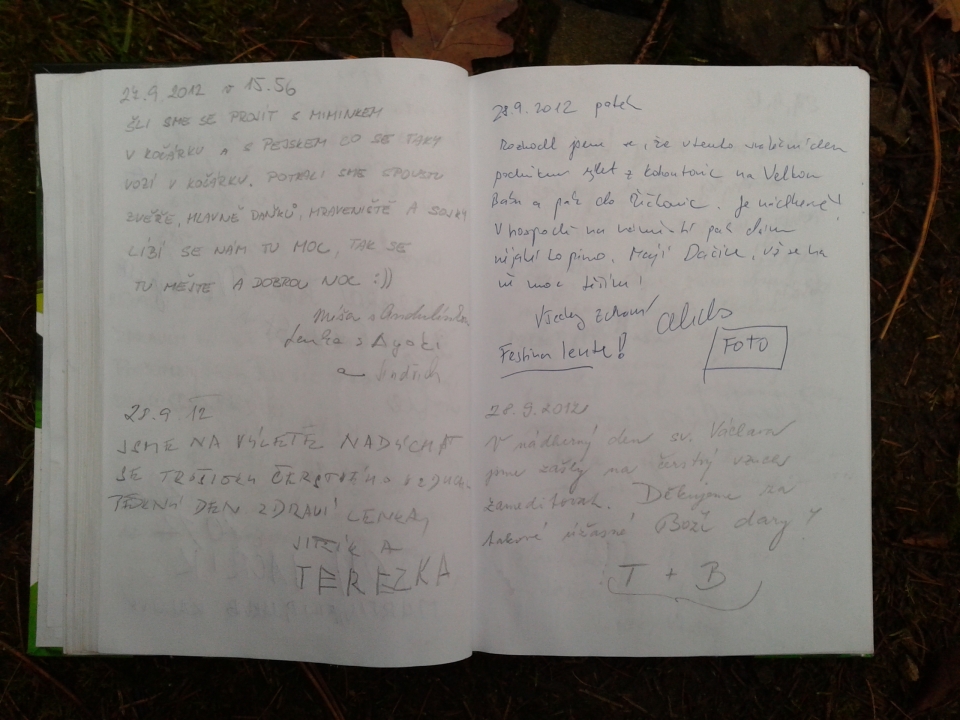 27.9 2012 v 15.56
ŠLI SME SE PROJÍT S MIMINKEM
V KOČÁRKU A S PEJSKEM CO SE TAKY
VOZÍ V KOČÁRKU. POTKALI SME SPOUSTU
ZVĚŘE, HLAVNĚ DAŇKŮ, MRAVENIŠTĚ A SOJKY
LÍBÍ SE NÁM TU MOC, TAK SE
TU MĚJTE A DOBROU NOC :))
Míša s Andulínkou
Lenka s Ayaki
a Jindřich
28.9 12
JSME NA VÝLETĚ NADÝCHAT
SE TROŠIČKU ČERSTVÉHO VZDUCHU.
PĚKNÝ DEN ZDRAVÍ LENKA,
JITŘÍK A
TEREZKA
28.9.2012 pátek
Rozhodli jsme se, že v tento sváteční den
podnikneme výlet z Kohoutovic na Velkou
Babu a pak do . Je nádherně!
V hospodě na náměstí pak dáme
nějaké to pivo. Mají Dačice, už se na
ně moc těšíme!
Všechny zdraví
Festina lente!
FOTO
28.9.2012
V nádherný den sv. Václava
jsme zašly na čerstvý vzduch
zameditovat. Děkujeme za
takové úžasné Boží dary
T + B